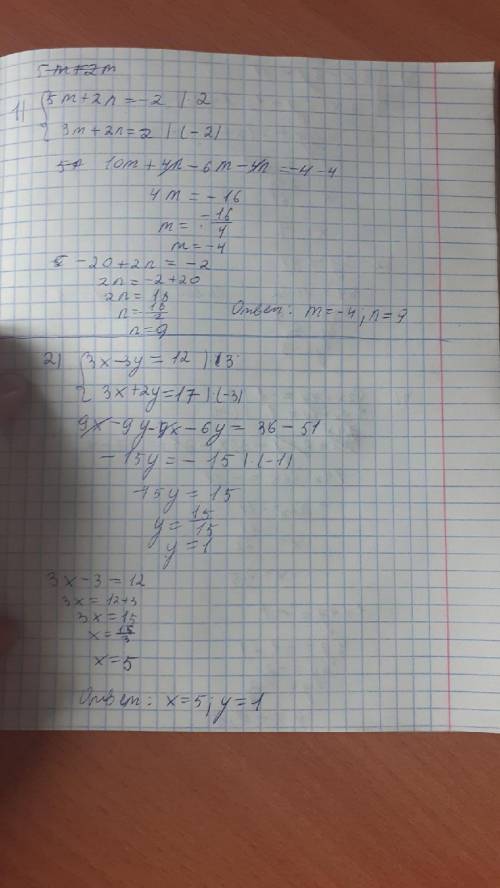 5m+2m
1) { 5m+2n=-2 | 2
3m+2n=2 | (-2)
10m+4n-6m-4n=-4-4
4m=-16
m=-16/4
m=-4
-20+2n=-2
2n=-2+20
2n=18
n=18/2
n=9
Ответ: m=-4, n=9
2) { 3x-3y=12 | 3
3x+2y=17 | (-3)
9x-9y-9x-6y=36-51
-15y=-15 | (-1)
15y=15
y=15/15
y=1
3x-3=12
3x=12+3
3x=15
x=15/3
x=5
Ответ: x=5; y=1